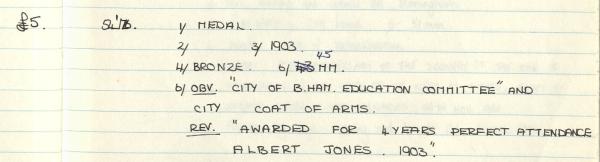 £5. 1/ MEDAL.
2/ 3/ 1903.
45
4/ BRONZE. 6/ MM.
6/ OBV. "CITY OF B.HAM. EDUCATION COMMITTEE" AND
CITY COAT OF ARMS.
REV. "AWARDED FOR 4 YEARS PERFECT ATTENDANCE
ALBERT JONES. 1903".